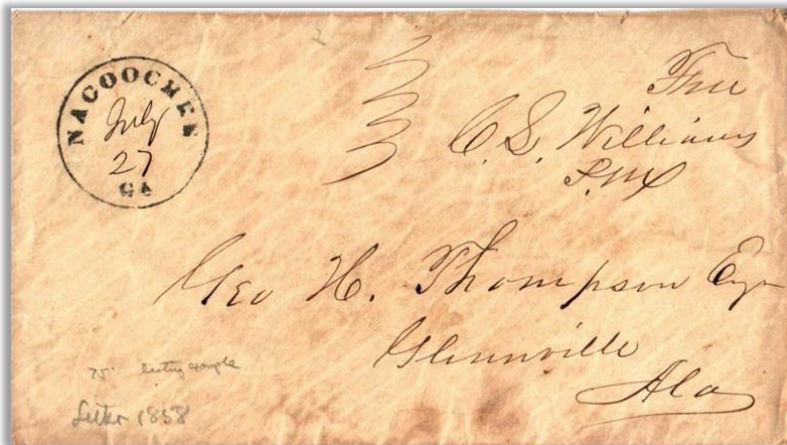 NACOOCHEE
July
27
GA
Free
C. S. Williams
P.M.
Geo H. Thompson Esqr
Glennville
Ala
75- listing example
Letter 1858